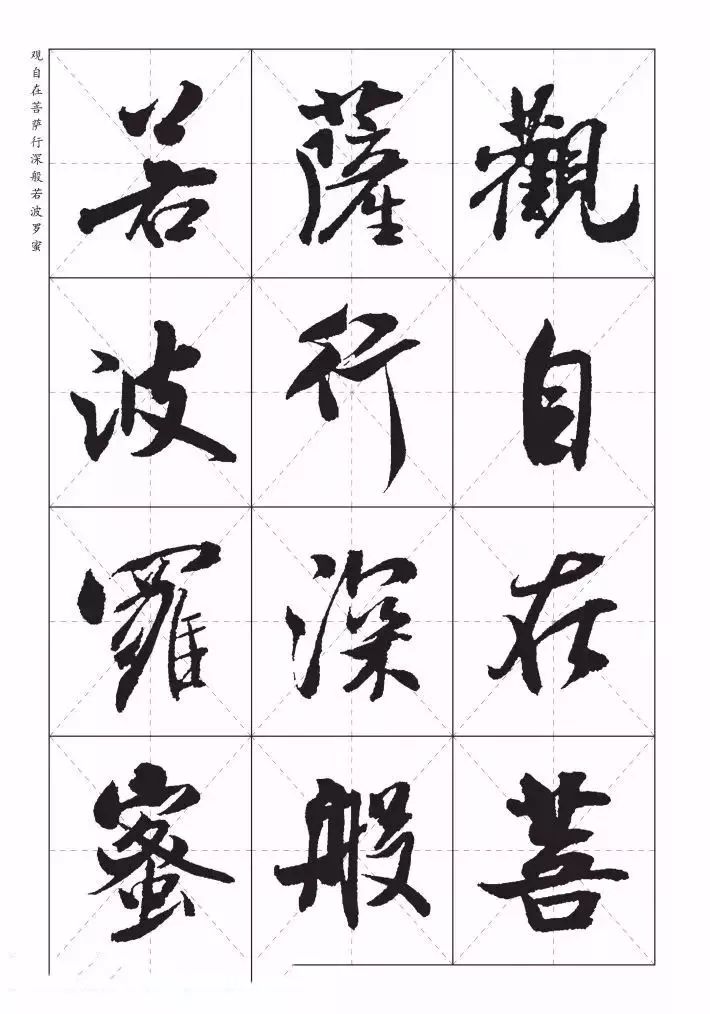 觀自在菩
薩行深般
若波羅蜜
观自在菩萨行深般若波罗蜜